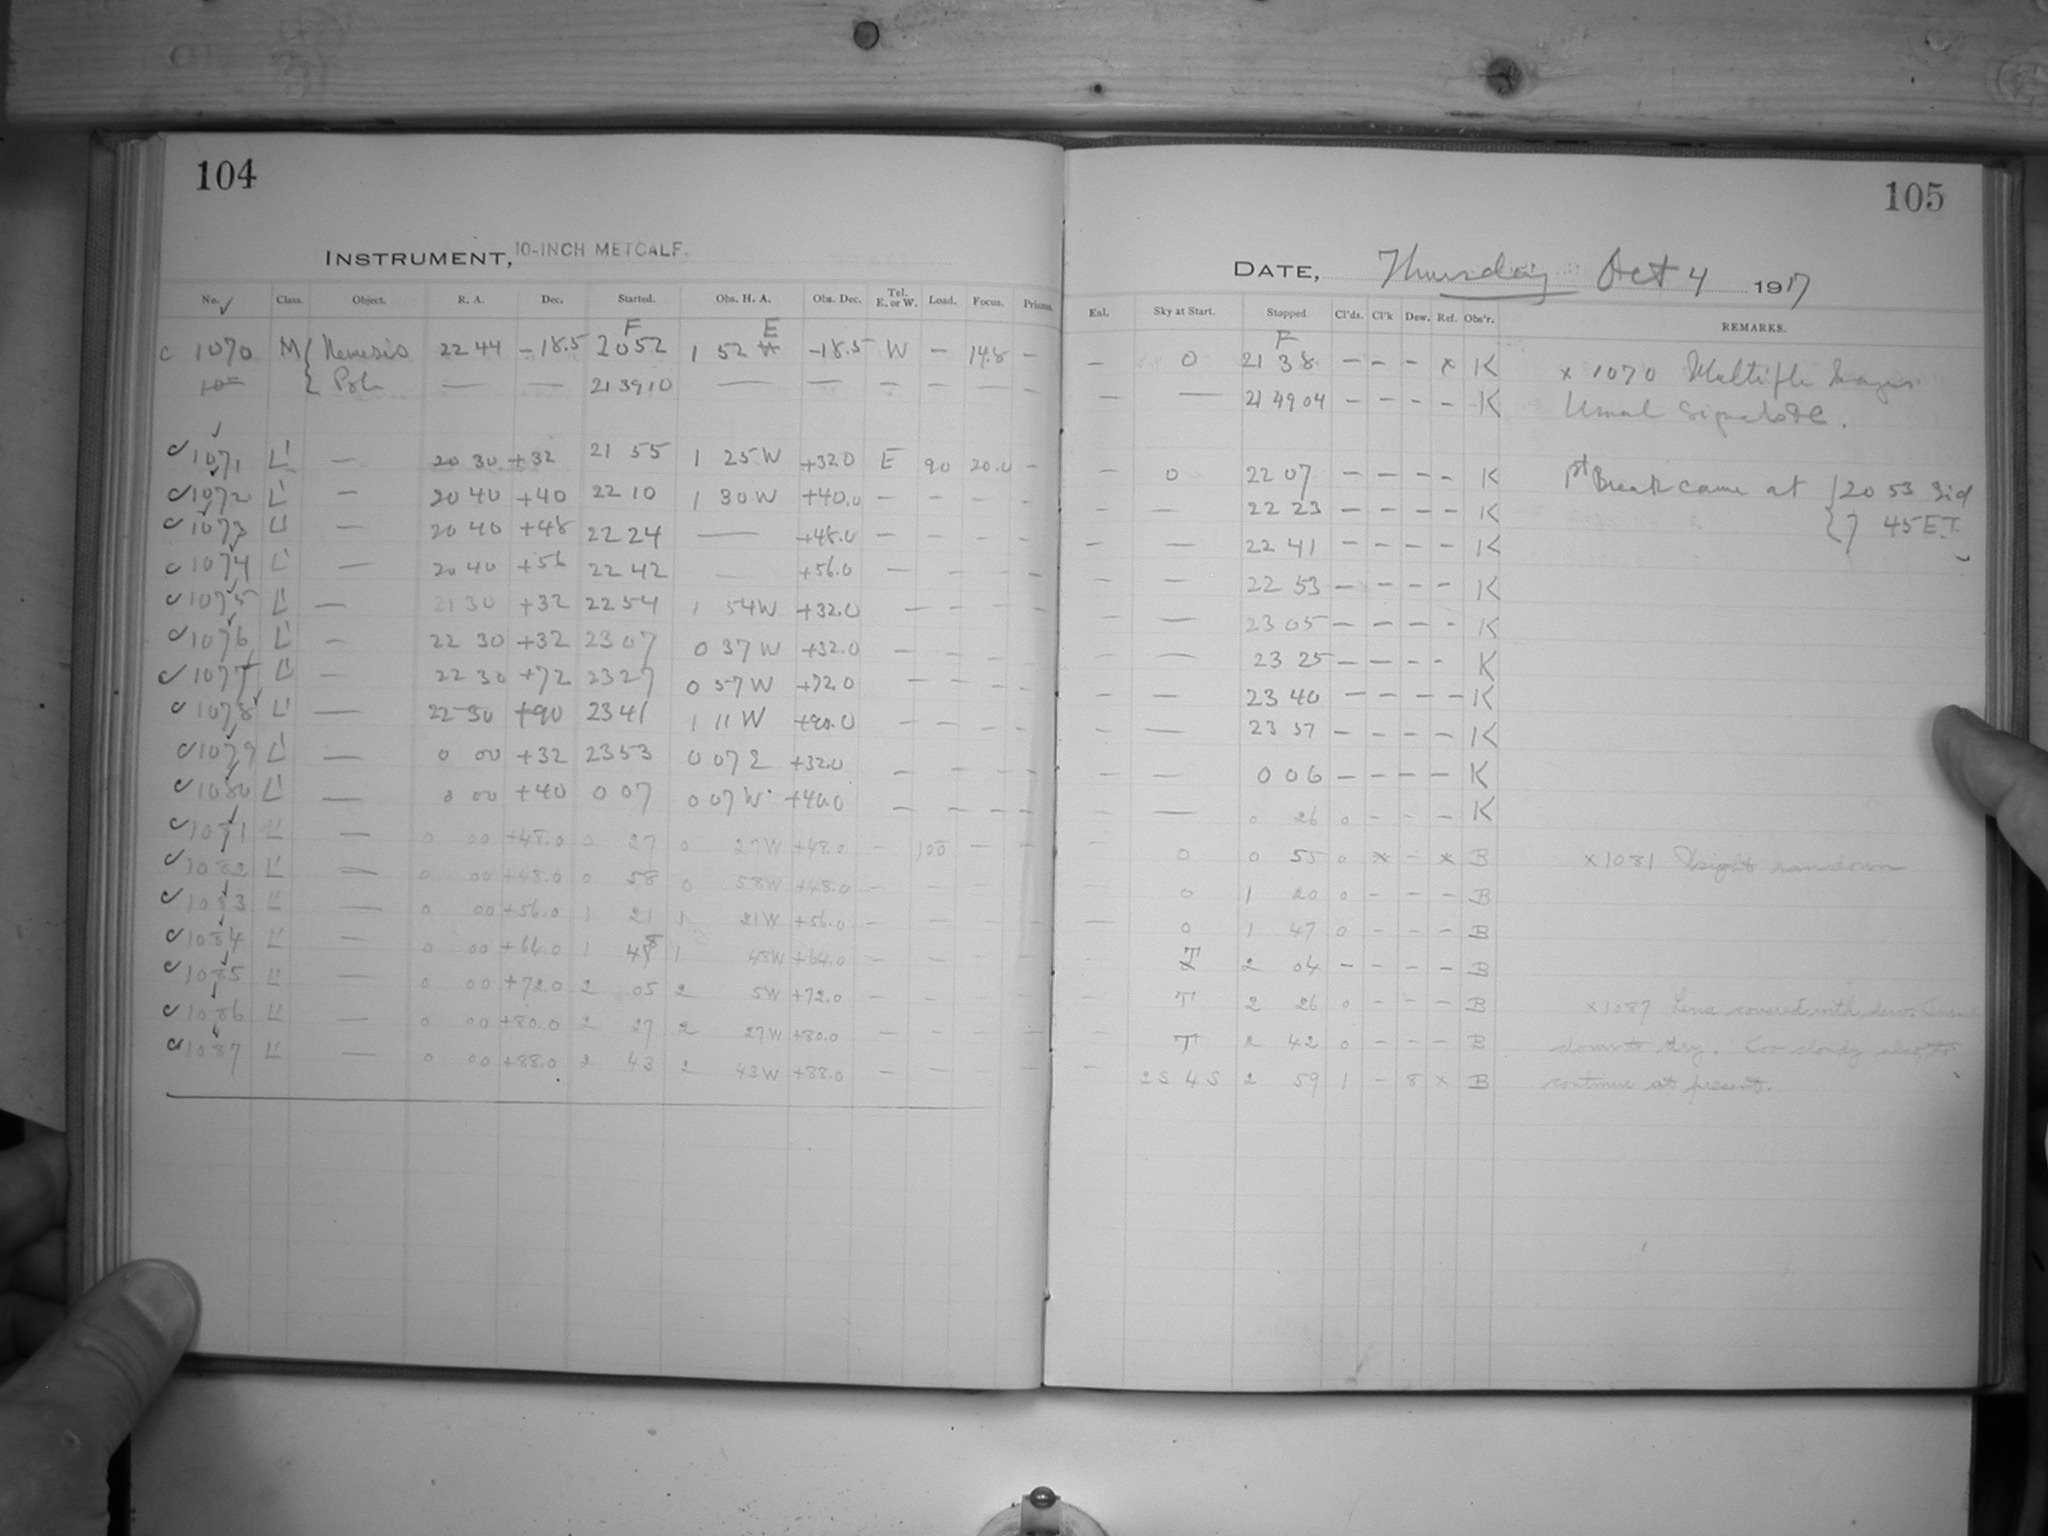 104
INSTRUMENT, 10-INCH METCALF.
No. Class. Object. R. A. Dec. Started. Obs. H. A. Obs. Dec. Tel. E. or W. Load. Focus. Prisms.
F E
c 1070 M { Nemesis 22 44 -18.5 2052 1 52 W -18.5 W - 14.8 -
{ Pole — — 21 39 10 — — - - - -
1071 L' — 20 30 +32 21 55 1 25 W +32.0 E 90 20.0 -
1072 L' — 20 40 +40 22 10 1 30 W +40.0 - - - -
1073 L' — 20 40 +48 22 24 — +48.0 - - - -
1074 L' — 20 40 +56 22 42 — +56.0 - - - -
1075 L' — 21 30 +32 22 54 1 54 W +32.0 - - - -
1076 L' — 22 30 +32 23 07 0 37 W +32.0 - - - -
1077 L' — 22 30 +72 23 27 0 57 W +72.0 - - - -
1078 L' — 22 30 +90 23 41 1 11 W +90.0 - - - -
1079 L' — 0 00 +32 23 53 0 07 E +32.0 - - - -
1080 L' — 0 00 +40 0 07 0 07 W +40.0 - - - -
1081 L' — 0 00 +48.0 0 27 0 27 W +48.0 - 100 - -
1082 L' — 0 00 +48.0 0 58 0 58 W +48.0 - - - -
1083 L' — 0 00 +56.0 1 21 1 21 W +56.0 - - - -
1084 L' — 0 00 +64.0 1 48 1 48 W +64.0 - - - -
1085 L' — 0 00 +72.0 2 05 2 5 W +72.0 - - - -
1086 L' — 0 00 +80.0 2 27 2 27 W +80.0 - - - -
1087 L' — 0 00 +88.0 2 43 2 43 W +88.0 - - - -
105
DATE, Thursday Oct 4 1917
Eal. Sky at Start. Stopped. Cl'ds. Cl'k Dew. Ref. Obs'r. REMARKS.
F
- 0 21 38 - - - x K x 1070 Multiple Images
- — 21 49 04 - - - - K Usual Signal
- 0 22 07 - - - - K 1st Break came at { 20 53 Sid
- — 22 23 - - - - K { 7 45 E.T.
- — 22 41 - - - - K
- — 22 53 - - - - K
- — 23 05 - - - - K
- — 23 25 - - - - K
- — 23 40 - - - - K
- — 23 57 - - - - K
- — 0 06 - - - - K
- — 0 26 0 - - - K
- 0 0 55 0 x - x B x 1081 Weight ran down
- 0 1 20 0 - - - B
- 0 1 47 0 - - - B
T 2 04 - - - - B
T 2 26 0 - - - B x 1087 Lens covered with dew.
T 2 42 0 - - - B down to dry. Too cloudy also to
- 2S 4S 2 59 1 - 8 x B continue at present.